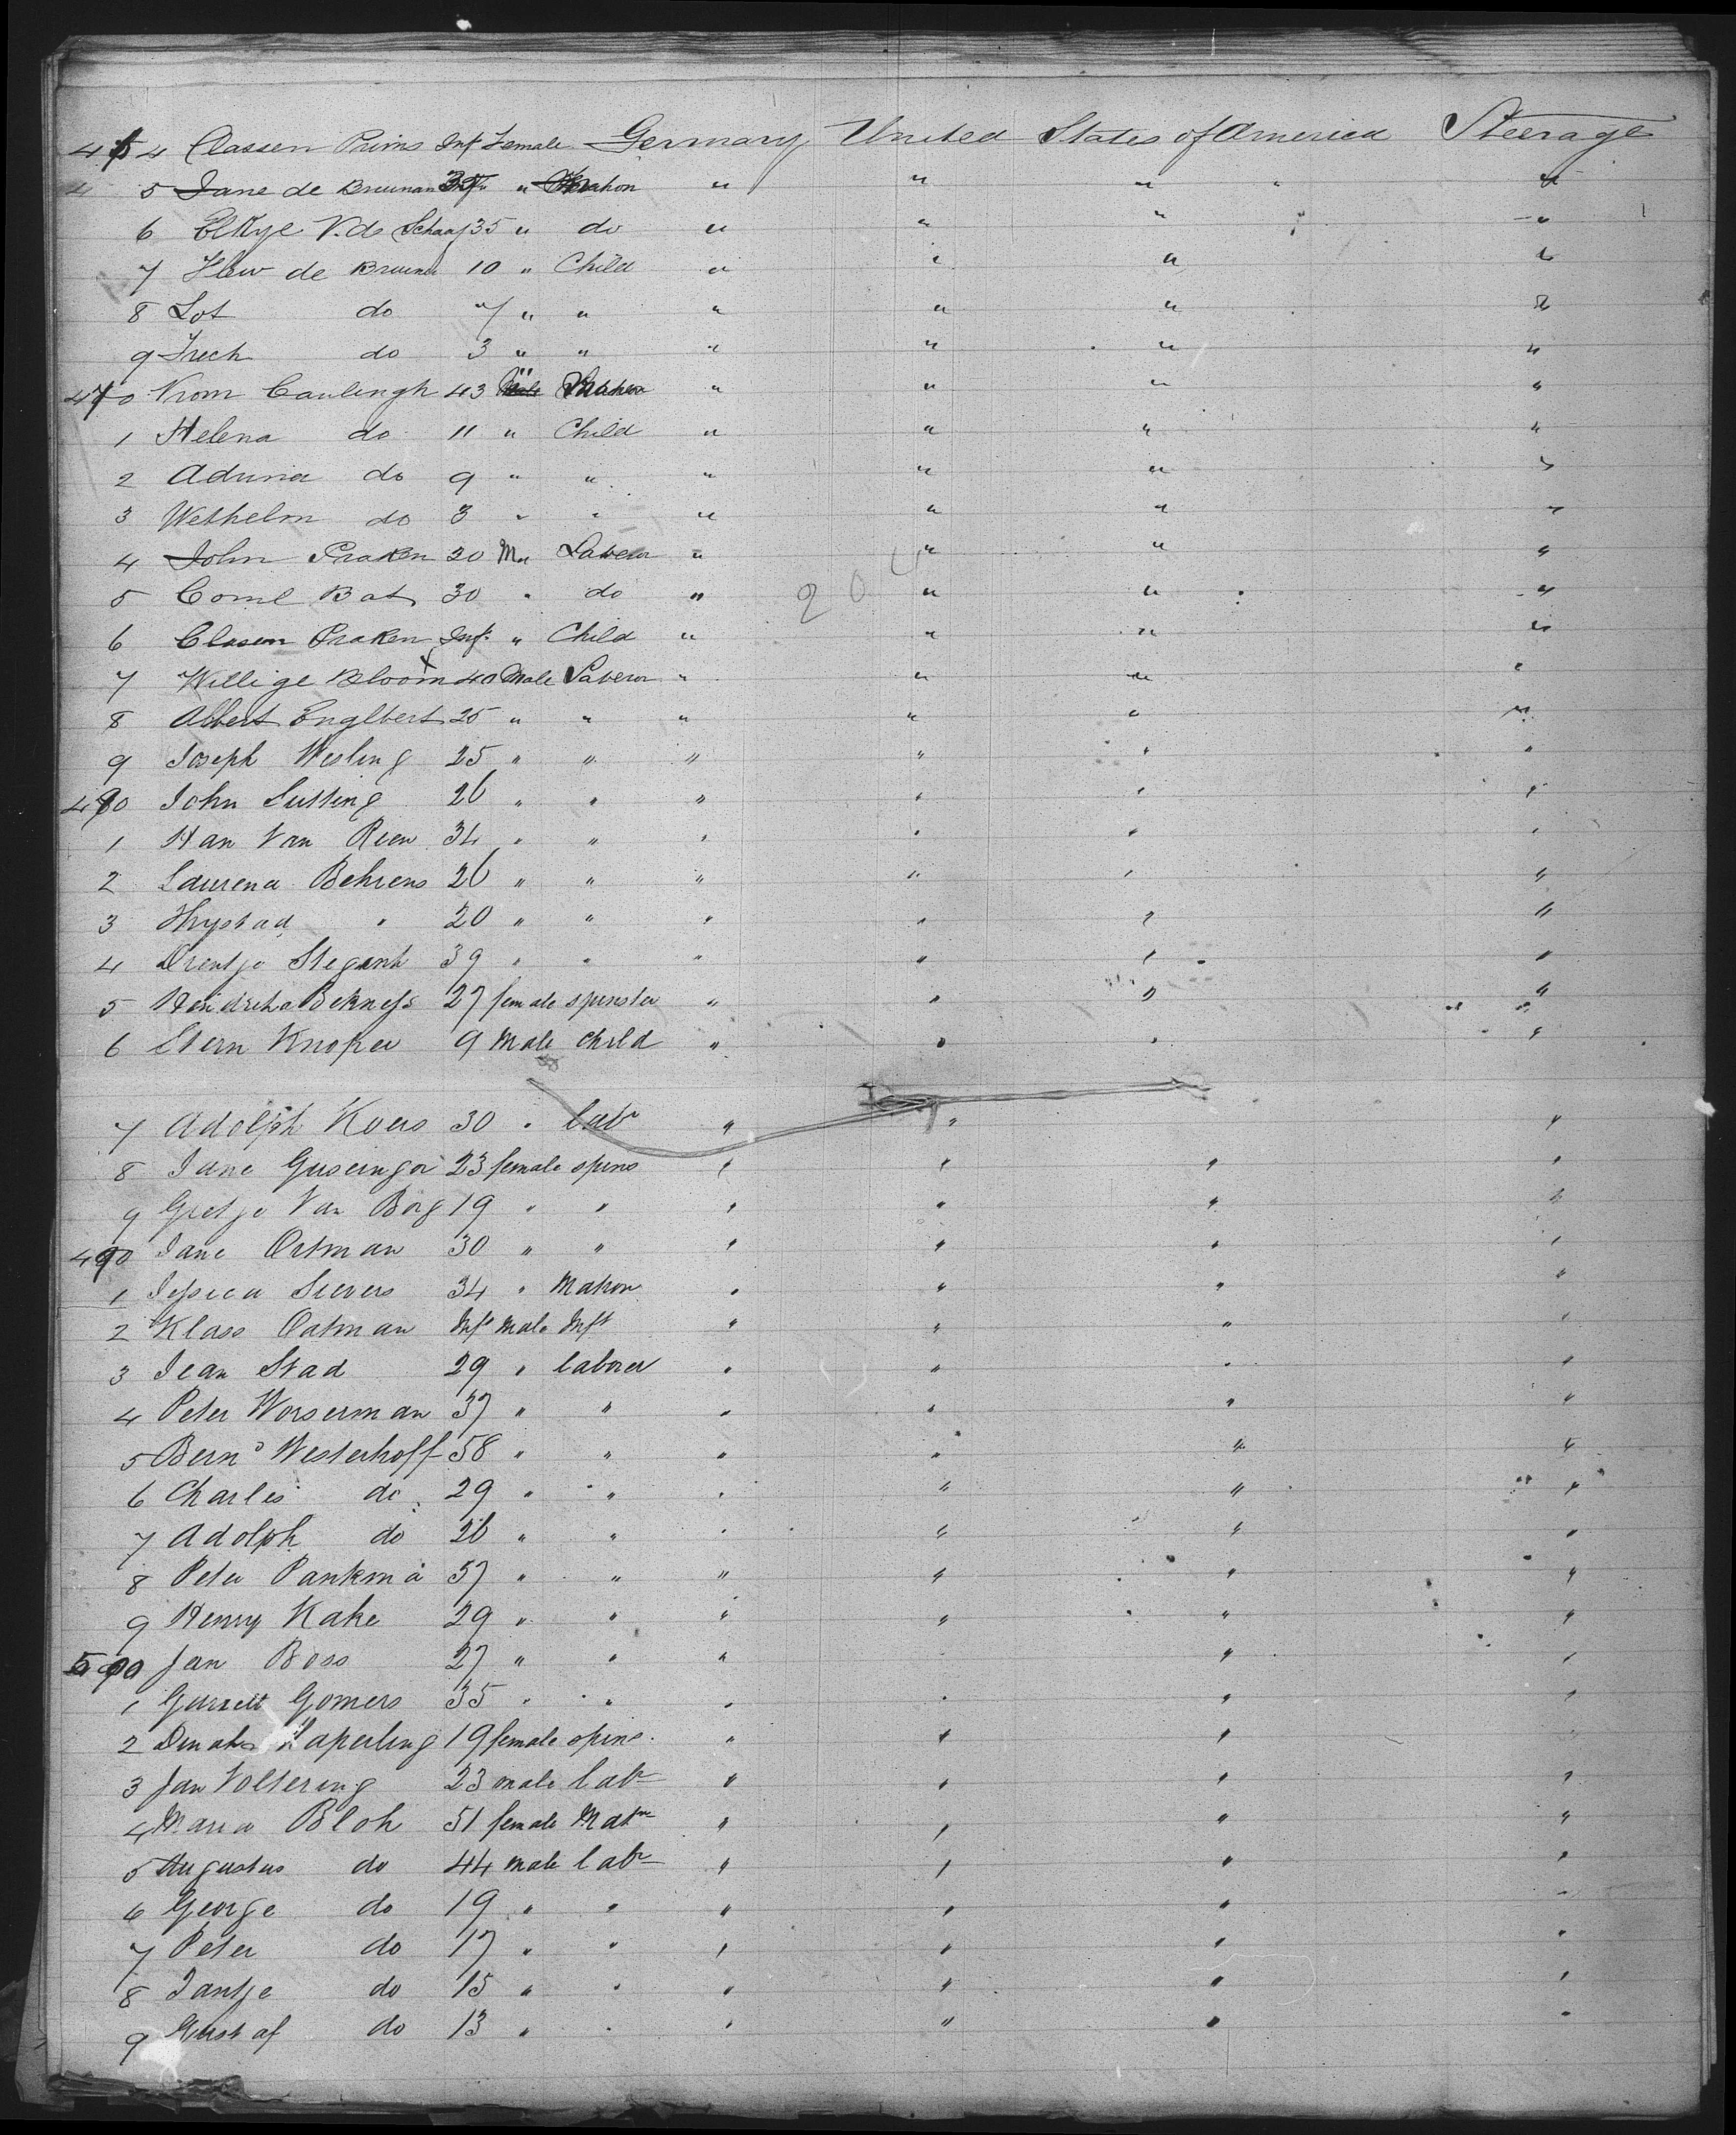 464 Classen Prins Inf Female Germany United States of America Steerage
5 Jane de Bruunan " Matron " " " "
6 Elkye V. de Schaaf 35 " do " " " "
7 de Bruuner 10 " Child " " " "
8 Lot do 7 " " " " " "
9 Trech do 3 " " " " " "
470 Vrom Caulingh 43 " Matron " " " "
1 Helena do 11 " Child " " " "
2 Aduna do 9 " " " " " "
3 Wethelm do 3 " " " " " "
4 John Praken 20 M Laberor " " " "
5 Cornl Bat 30 " do " " " "
6 Clasen Praken Inf " Child " " " "
7 Willige Bloom 40 Male Laberor " " " "
8 Albert Englbert 25 " " " " " "
9 Joseph Wesling 25 " " " " " "
480 John Sutting 26 " " " " " "
1 Han Van Rien 34 " " " " " "
2 Laurena Behrens 26 " " " " " "
3 Thystad " 20 " " " " " "
4 Drentje Stegant 39 " " " " " "
5 27 female spinster " " " "
6 Stern Knoper 9 Male child " " " "
7 Adolph Koers 30 " labr " " "
8 Jane Guseinga 23 female spins " " " "
9 Gretje Van Borg 19 " " " " " "
490 Jane Ortman 30 " " " " " "
1 Jessica Sievers 34 " Matron " " " "
2 Klass Oatman Inft male Inft " " " "
3 Jean Stad 29 " laborer " " " "
4 Peter Worserman 37 " " " " " "
5 Bernd Westerhoff 58 " " " " " "
6 Charles do 29 " " " " " "
7 Adolph do 26 " " " " " "
8 Peter Pankma 57 " " " " " "
9 Henry Kake 29 " " " " " "
500 Jan Boss 27 " " " " "
1 Garrett Gomers 35 " " " " " "
2 Dinah Kaperling 19 female spins. " " "
3 Jan Voltering 23 male labr " " " "
4 Maria Bloh 51 female Matrn " " " "
5 Augustus do 44 male labr " " " "
6 George do 19 " " " " " "
7 Peter do 17 " " " " " "
8 Jantje do 15 " " " " " "
9 Gustaf do 13 " " " " " "